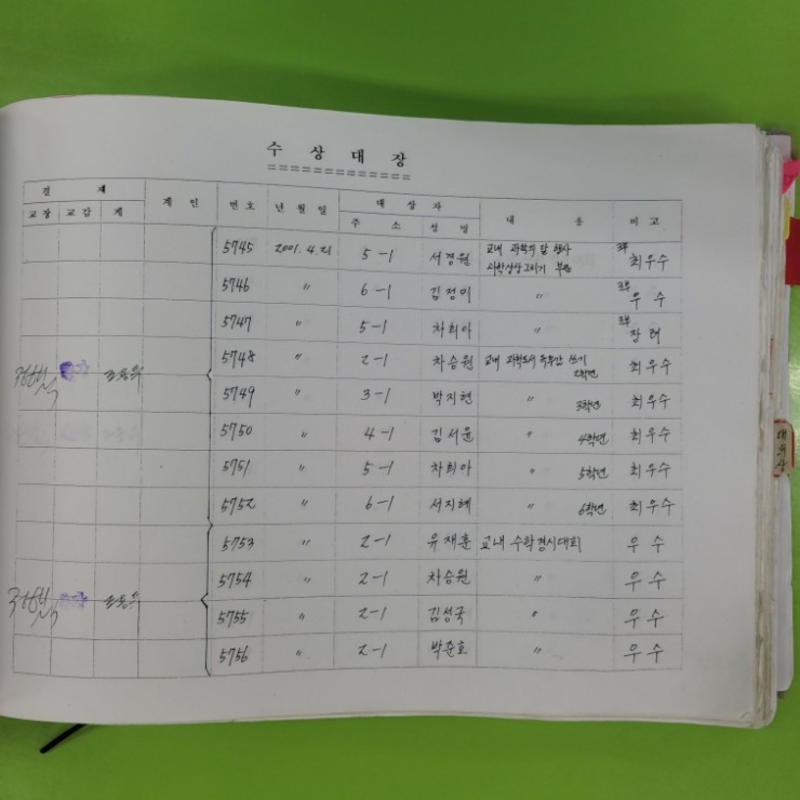 수 상 대 장
결 재
교장 교감 계
계 인
번호
년 월 일
대 상 자
주 소
성 명
내 용
비 고
5745 2001. 4. 21 5-1 서경원 교내 과학의 달 행사 최우수
과학상상그리기 부문
5746 〃 6-1 김정이 〃 우 수
5747 〃 5-1 차희아 〃 장 려
5748 〃 2-1 차승원 교내 과학도서 독후감 쓰기 최우수
2학년
5749 〃 3-1 박지현 〃 3학년 최우수
5750 〃 4-1 김서윤 〃 4학년 최우수
5751 〃 5-1 차희아 〃 5학년 최우수
5752 〃 6-1 서지혜 〃 6학년 최우수
5753 〃 2-1 유재훈 교내 수학경시대회 우 수
5754 〃 2-1 차승원 〃 우 수
5755 〃 2-1 김성국 〃 우 수
5756 〃 2-1 박준호 〃 우 수